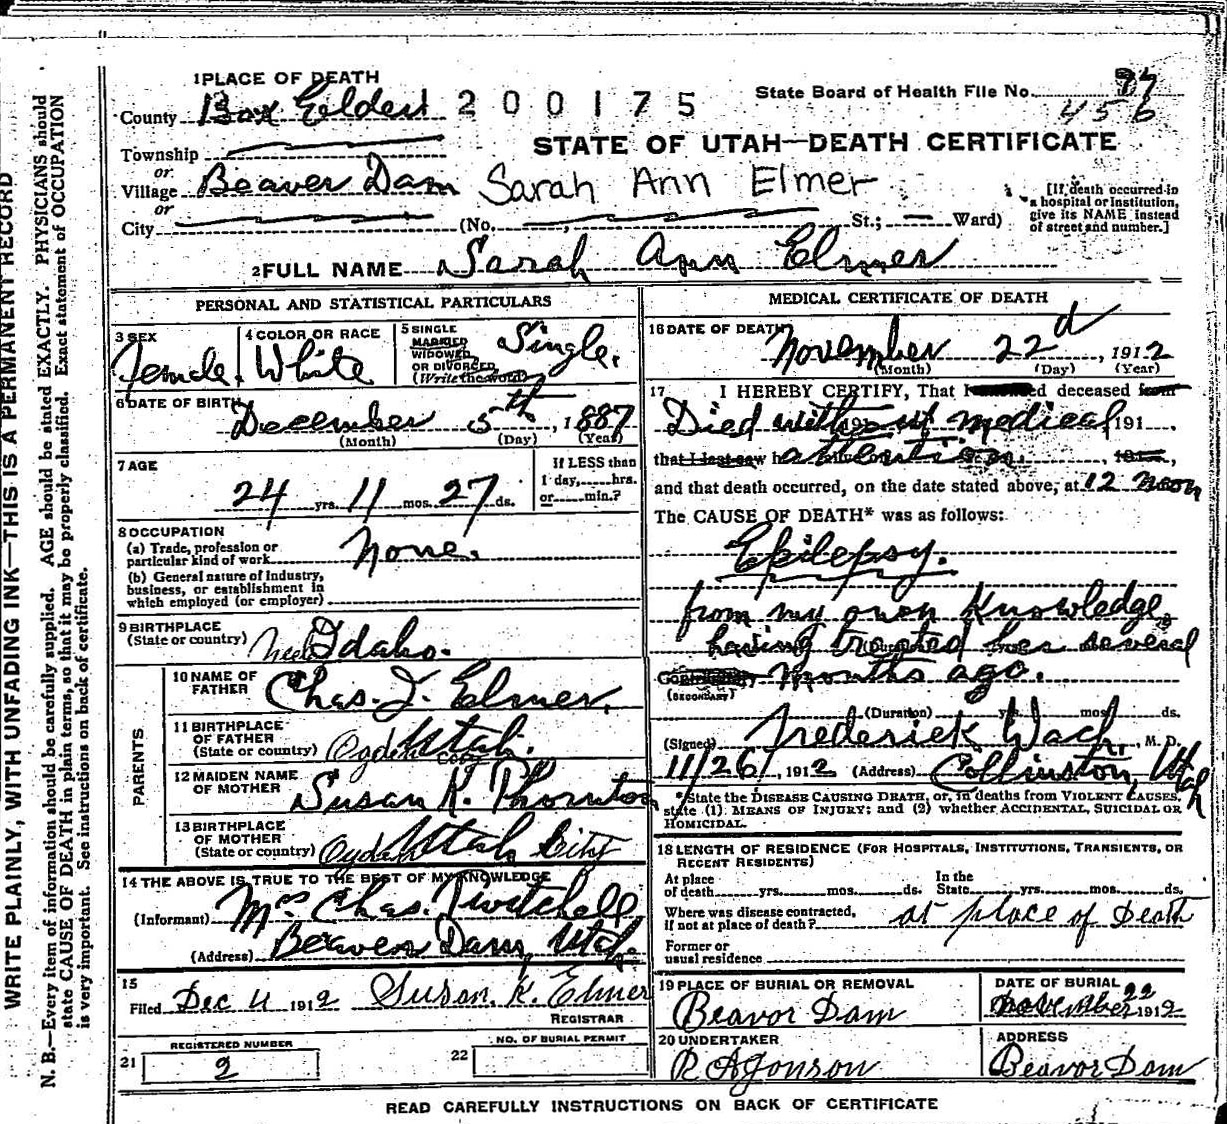 WRITE PLAINLY, WITH UNFADING INK—THIS IS A PERMANENT RECORD
N. B.—Every item of information should be carefully supplied. AGE should be stated EXACTLY. PHYSICIANS should
state CAUSE OF DEATH in plain terms, so that it may be properly classified. Exact statement of OCCUPATION
is very important. See instructions on back of certificate.
1 PLACE OF DEATH
County Box Elder 1200175
State Board of Health File No. 97
456
Township
STATE OF UTAH—DEATH CERTIFICATE
or
Village Beaver Dam Sarah Ann Elmer
or
City (No. St.; Ward)
[If death occurred in
a hospital or institution,
give its NAME instead
of street and number.]
2 FULL NAME Sarah Ann Elmer
PERSONAL AND STATISTICAL PARTICULARS
3 SEX Female.
4 COLOR OR RACE White
5 SINGLE
MARRIED
WIDOWED
OR DIVORCED
(Write the word)
Single.
6 DATE OF BIRTH
December 5th, 1887
(Month) (Day) (Year)
7 AGE
24 yrs. 11 mos. 27 ds.
If LESS than
1 day,......hrs.
or......min.?
8 OCCUPATION
(a) Trade, profession or
particular kind of work None.
(b) General nature of industry,
business, or establishment in
which employed (or employer)
9 BIRTHPLACE
(State or country) Idaho.
PARENTS
10 NAME OF
FATHER Chas. J. Elmer.
11 BIRTHPLACE
OF FATHER
(State or country) Ogden Utah.
City
12 MAIDEN NAME
OF MOTHER Susan K. Thornton
13 BIRTHPLACE
OF MOTHER
(State or country) Ogden Utah City
14 THE ABOVE IS TRUE TO THE BEST OF MY KNOWLEDGE
(Informant) Mrs Chas. Twitchell
(Address) Beaver Dam, Utah.
15
Filed Dec 4 1912 Susan. K. Elmer
REGISTRAR
REGISTERED NUMBER
21 2
NO. OF BURIAL PERMIT
22
MEDICAL CERTIFICATE OF DEATH
16 DATE OF DEATH
November 22d, 1912
(Month) (Day) (Year)
17 I HEREBY CERTIFY, That I deceased from
Died without medical 191
that I last saw h attention.
and that death occurred, on the date stated above, at 12 Noon
The CAUSE OF DEATH* was as follows:
Epilepsy.
from my own Knowledge,
having treated her several
months ago.
(SECONDARY)
(Duration) yrs. mos. ds.
(Signed) Frederick Wach, M. D.
11/26/, 1912 (Address) Collinston, Utah
*State the DISEASE CAUSING DEATH, or, in deaths from VIOLENT CAUSES,
state (1) MEANS OF INJURY; and (2) whether ACCIDENTAL, SUICIDAL OR
HOMICIDAL.
18 LENGTH OF RESIDENCE (FOR HOSPITALS, INSTITUTIONS, TRANSIENTS, OR
RECENT RESIDENTS)
At place
of death......yrs......mos......ds.
In the
State......yrs......mos......ds.
Where was disease contracted,
if not at place of death? at place of Death
Former or
usual residence
19 PLACE OF BURIAL OR REMOVAL
Beavor Dam
DATE OF BURIAL
November 22 1912
20 UNDERTAKER
R A Jonson
ADDRESS
Beavor Dam
READ CAREFULLY INSTRUCTIONS ON BACK OF CERTIFICATE